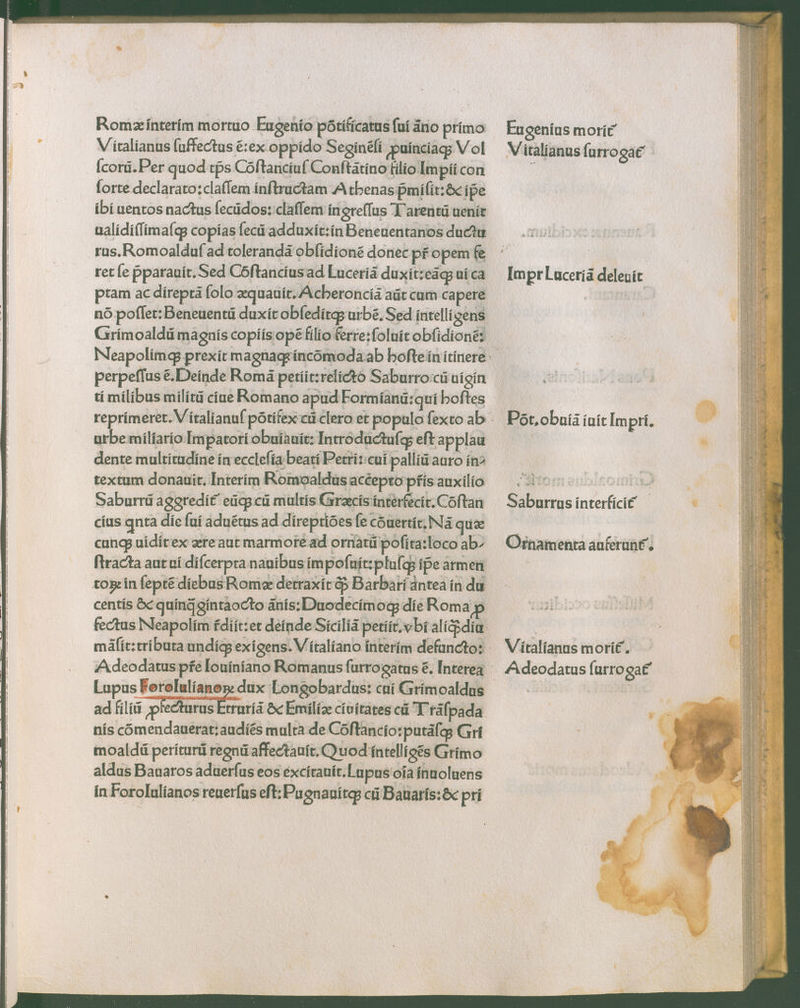 Romæ interim mortuo Eugenio põtificatus ſui ãno primo
Vitalianus ſuffectus ẽ:ex oppido Seginẽſi ꝓuinciaqꝫ Vol
ſcorũ.Per quod tp̃s Cõſtanciuſ Conſtãtino filio Impii con
ſorte declarato:claſſem inſtructam Athenas p̃miſit:& ip̃e
ibi uentos nactus ſecũdos: claſſem ingreſſus Tarentũ uenit
ualidiſſimaſqꝫ copias ſecũ adduxit:in Beneuentanos ductu
rus.Romoalduſ ad tolerandã obſidionẽ donec pr̃ opem fe
ret ſe p̃parauit.Sed Cõſtancius ad Luceriã duxit:eãqꝫ ui ca
ptam ac direptã ſolo æquauit.Acheronciã aũt cum capere
nõ poſſet:Beneuentũ duxit obſeditqꝫ urbẽ.Sed intelligens
Grimoaldũ magnis copiis opẽ filio ferre:ſoluit obſidionẽ:
Neapolimqꝫ prexit magnaqꝫ incõmoda ab hoſte in itinere
perpeſſus ẽ.Deinde Romã petiit:relicto Saburro cũ uigin
ti milibus militũ ciue Romano apud Formianũ:qui hoſtes
reprimeret.Vitalianuſ põtifex cũ clero et populo ſexto ab
urbe miliario Impatori obuiauit: Introductuſqꝫ eſt applau
dente multitudine in eccleſia beati Petri: cui palliũ auro in⸗
textum donauit. Interim Romoaldus accepto pr̃is auxilio
Saburrũ aggredit᷑ eũqꝫ cũ multis Græcis interfecit.Cõſtan
cius qnta die ſui aduẽtus ad direptiões ſe cõuertit.Nã quæ
cunqꝫ uidit ex ære aut marmore ad ornatũ poſita:loco ab⸗
ſtracta aut ui diſcerpta nauibus impoſuit:pluſqꝫ ip̃e armen
toꝝ in ſeptẽ diebus Romæ detraxit q̃ꝫ Barbari antea in du
centis & quinq̃gintaocto ãnis:Duodecimoqꝫ die Roma ꝓ
fectus Neapolim r̃diit:et deinde Siciliã petiit.vbi aliq̃ꝫdiu
mãſit:tributa undiqꝫ exigens.Vitaliano interim defuncto:
Adeodatus pr̃e Iouiniano Romanus ſurrogatus ẽ. Interea
Lupus ForoIulianoꝝ dux Longobardus: cui Grimoaldus
ad filiũ ꝓfecturus Etruriã & Emiliæ ciuitates cũ Trãſpada
nis cõmendauerat:audiẽs multa de Cõſtancio:putãſqꝫ Gri
moaldũ periturũ regnũ affectauit.Quod intelligẽs Grimo
aldus Bauaros aduerſus eos excitauit.Lupus oĩa inuoluens
in ForoIulianos reuerſus eſt:Pugnauitqꝫ cũ Bauaris:& pri
Eugenius morit᷑
Vitalianus ſurrogat᷑
Impr Luceriã deleuit
Põt.obuiã iuit Impri.
Saburrus interficit᷑
Ornamenta auferunt᷑.
Vitalianus morit᷑.
Adeodatus ſurrogat᷑